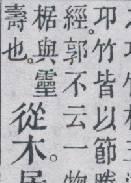 卭竹皆以節
經。郭不云一物
椐與靈
壽也。
從木。居